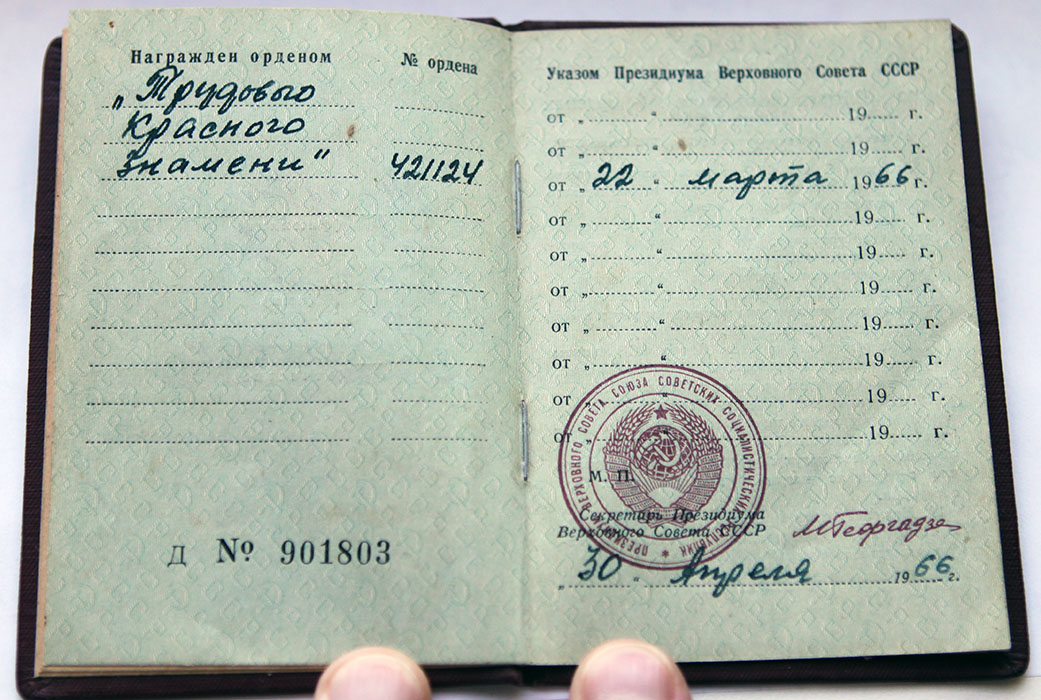 Награжден орденом
№ ордена
„Трудового
Красного
Знамени"
421124
Д № 901803
Указом Президиума Верховного Совета СССР
от „ “ 19 г.
от „ “ 19 г.
от „22“ марта 1966 г.
от „ “ 19 г.
от „ “ 19 г.
от „ “ 19 г.
от „ “ 19 г.
от „ “ 19 г.
от „ “ 19 г.
от „ “ 19 г.
ПРЕЗИДИУМ ВЕРХОВНОГО СОВЕТА СОЮЗА СОВЕТСКИХ СОЦИАЛИСТИЧЕСКИХ РЕСПУБЛИК
М. П.
Секретарь Президиума
Верховного Совета СССР
МГеоргадзе
„30“ Апреля 1966 г.